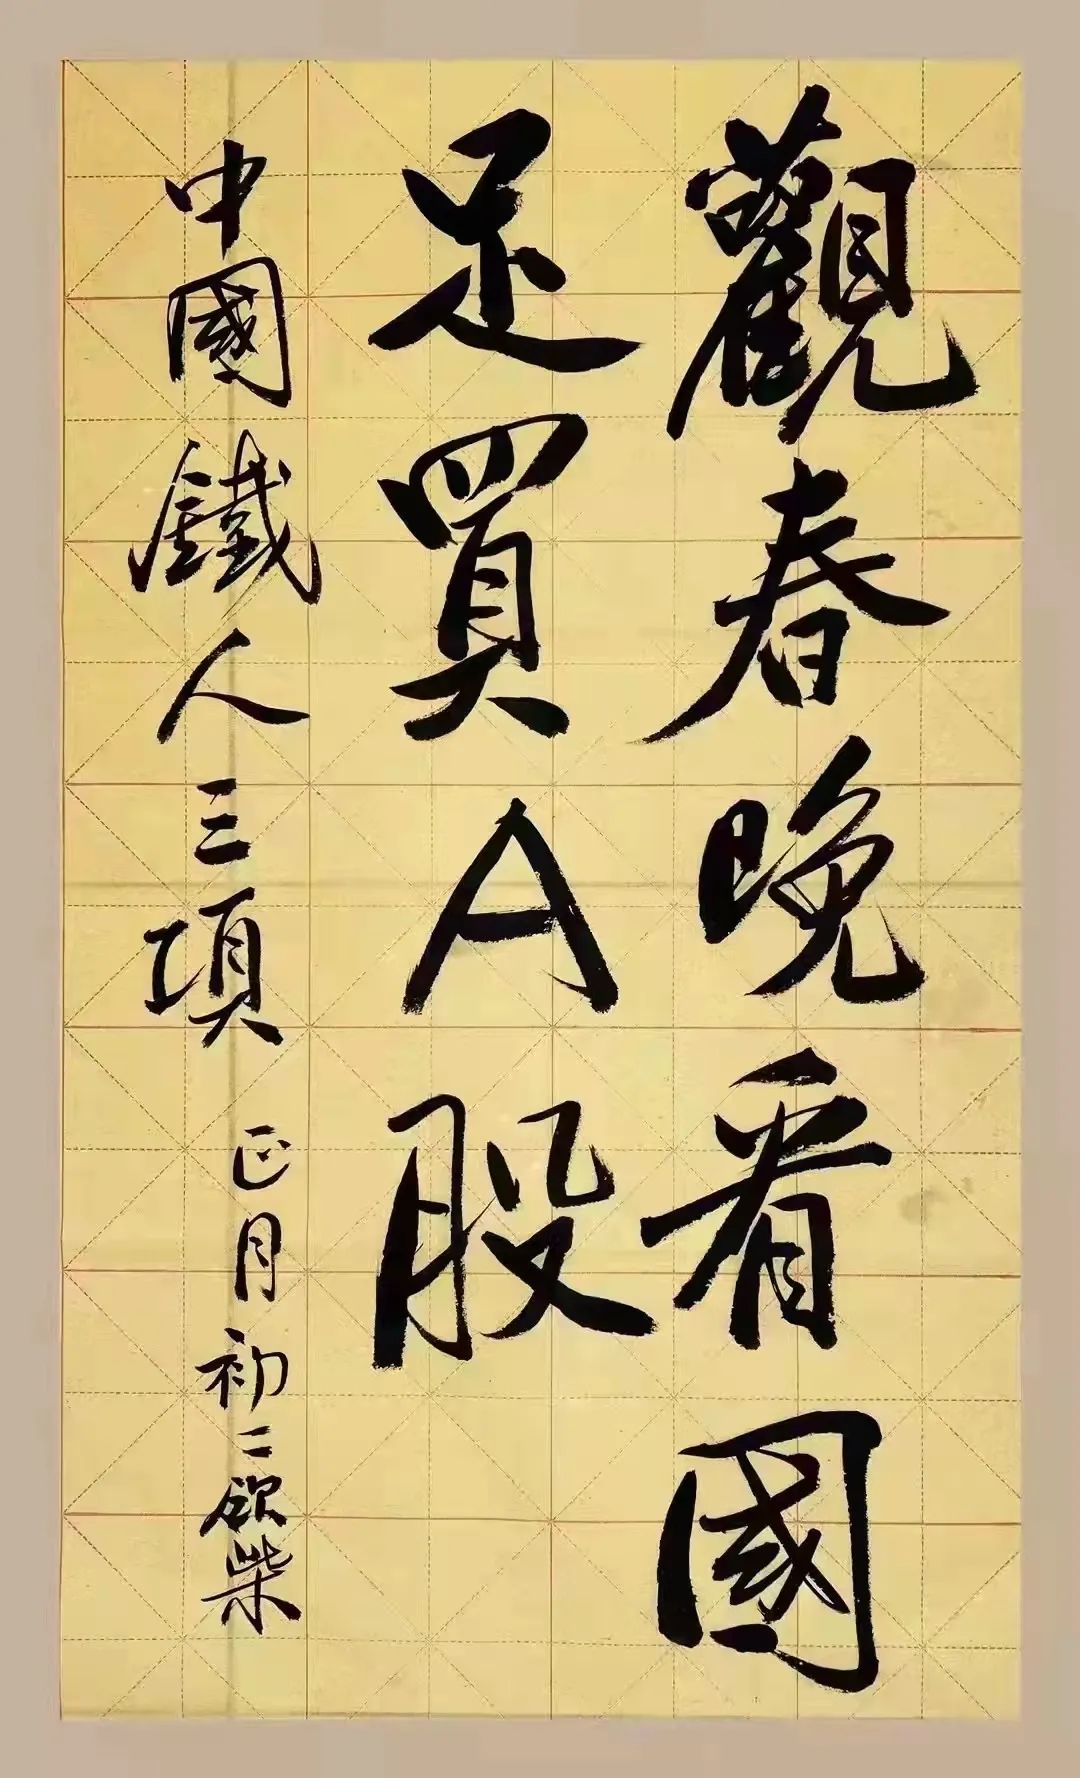 觀春晚看國
足買A股
中國鐵人三項 正月初二欲柴